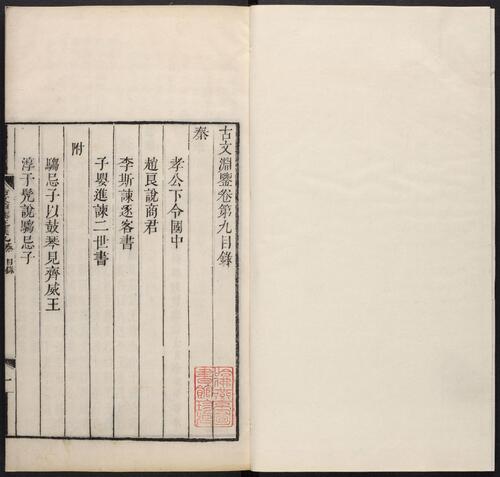 古文淵鑒卷第九目錄
秦
孝公下令國中
趙良說商君
李斯諫逐客書
子嬰進諫二世書
附
騶忌子以鼓琴見齊威王
淳于髡說騶忌子